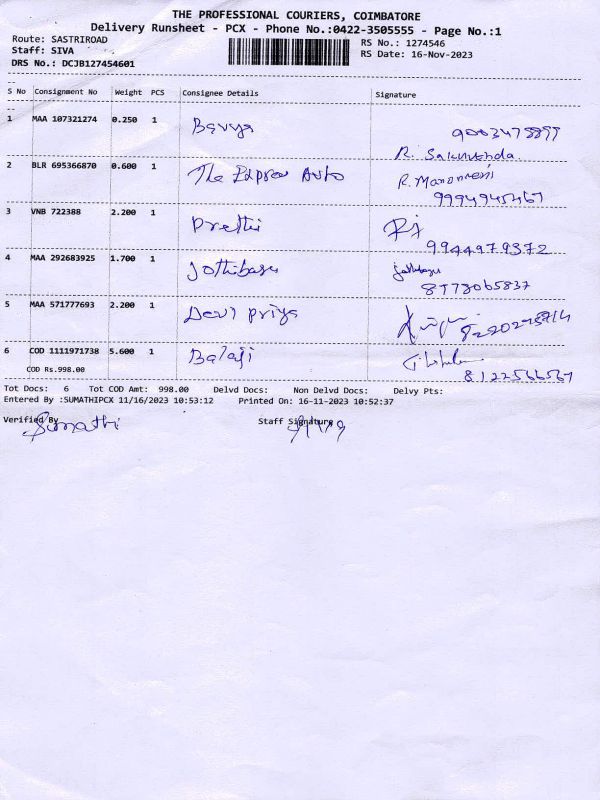 THE PROFESSIONAL COURIERS, COIMBATORE
Delivery Runsheet - PCX - Phone No.:0422-3505555 - Page No.:1
Route: SASTRIROAD
RS No.: 1274546
Staff: SIVA
RS Date: 16-Nov-2023
DRS No.: DCJB127454601
S No Consignment No Weight PCS Consignee Details Signature
1 MAA 107321274 0.250 1 Bavya
R.
2 BLR 695366870 0.600 1 The Express Auto R.
3 VNB 722388 2.200 1 Preethi
9944979372
4 MAA 292683925 1.700 1 Jothibasu Jothibasu
8973065837
5 MAA 571777693 2.200 1 Devi Priya
6 COD 1111971738 5.600 1 Balaji
COD Rs.998.00
8122566567
Tot Docs: 6 Tot COD Amt: 998.00 Delvd Docs: Non Delvd Docs: Delvy Pts:
Entered By :SUMATHIPCX 11/16/2023 10:53:12 Printed On: 16-11-2023 10:52:37
Verified By Staff Signature
Sumathi